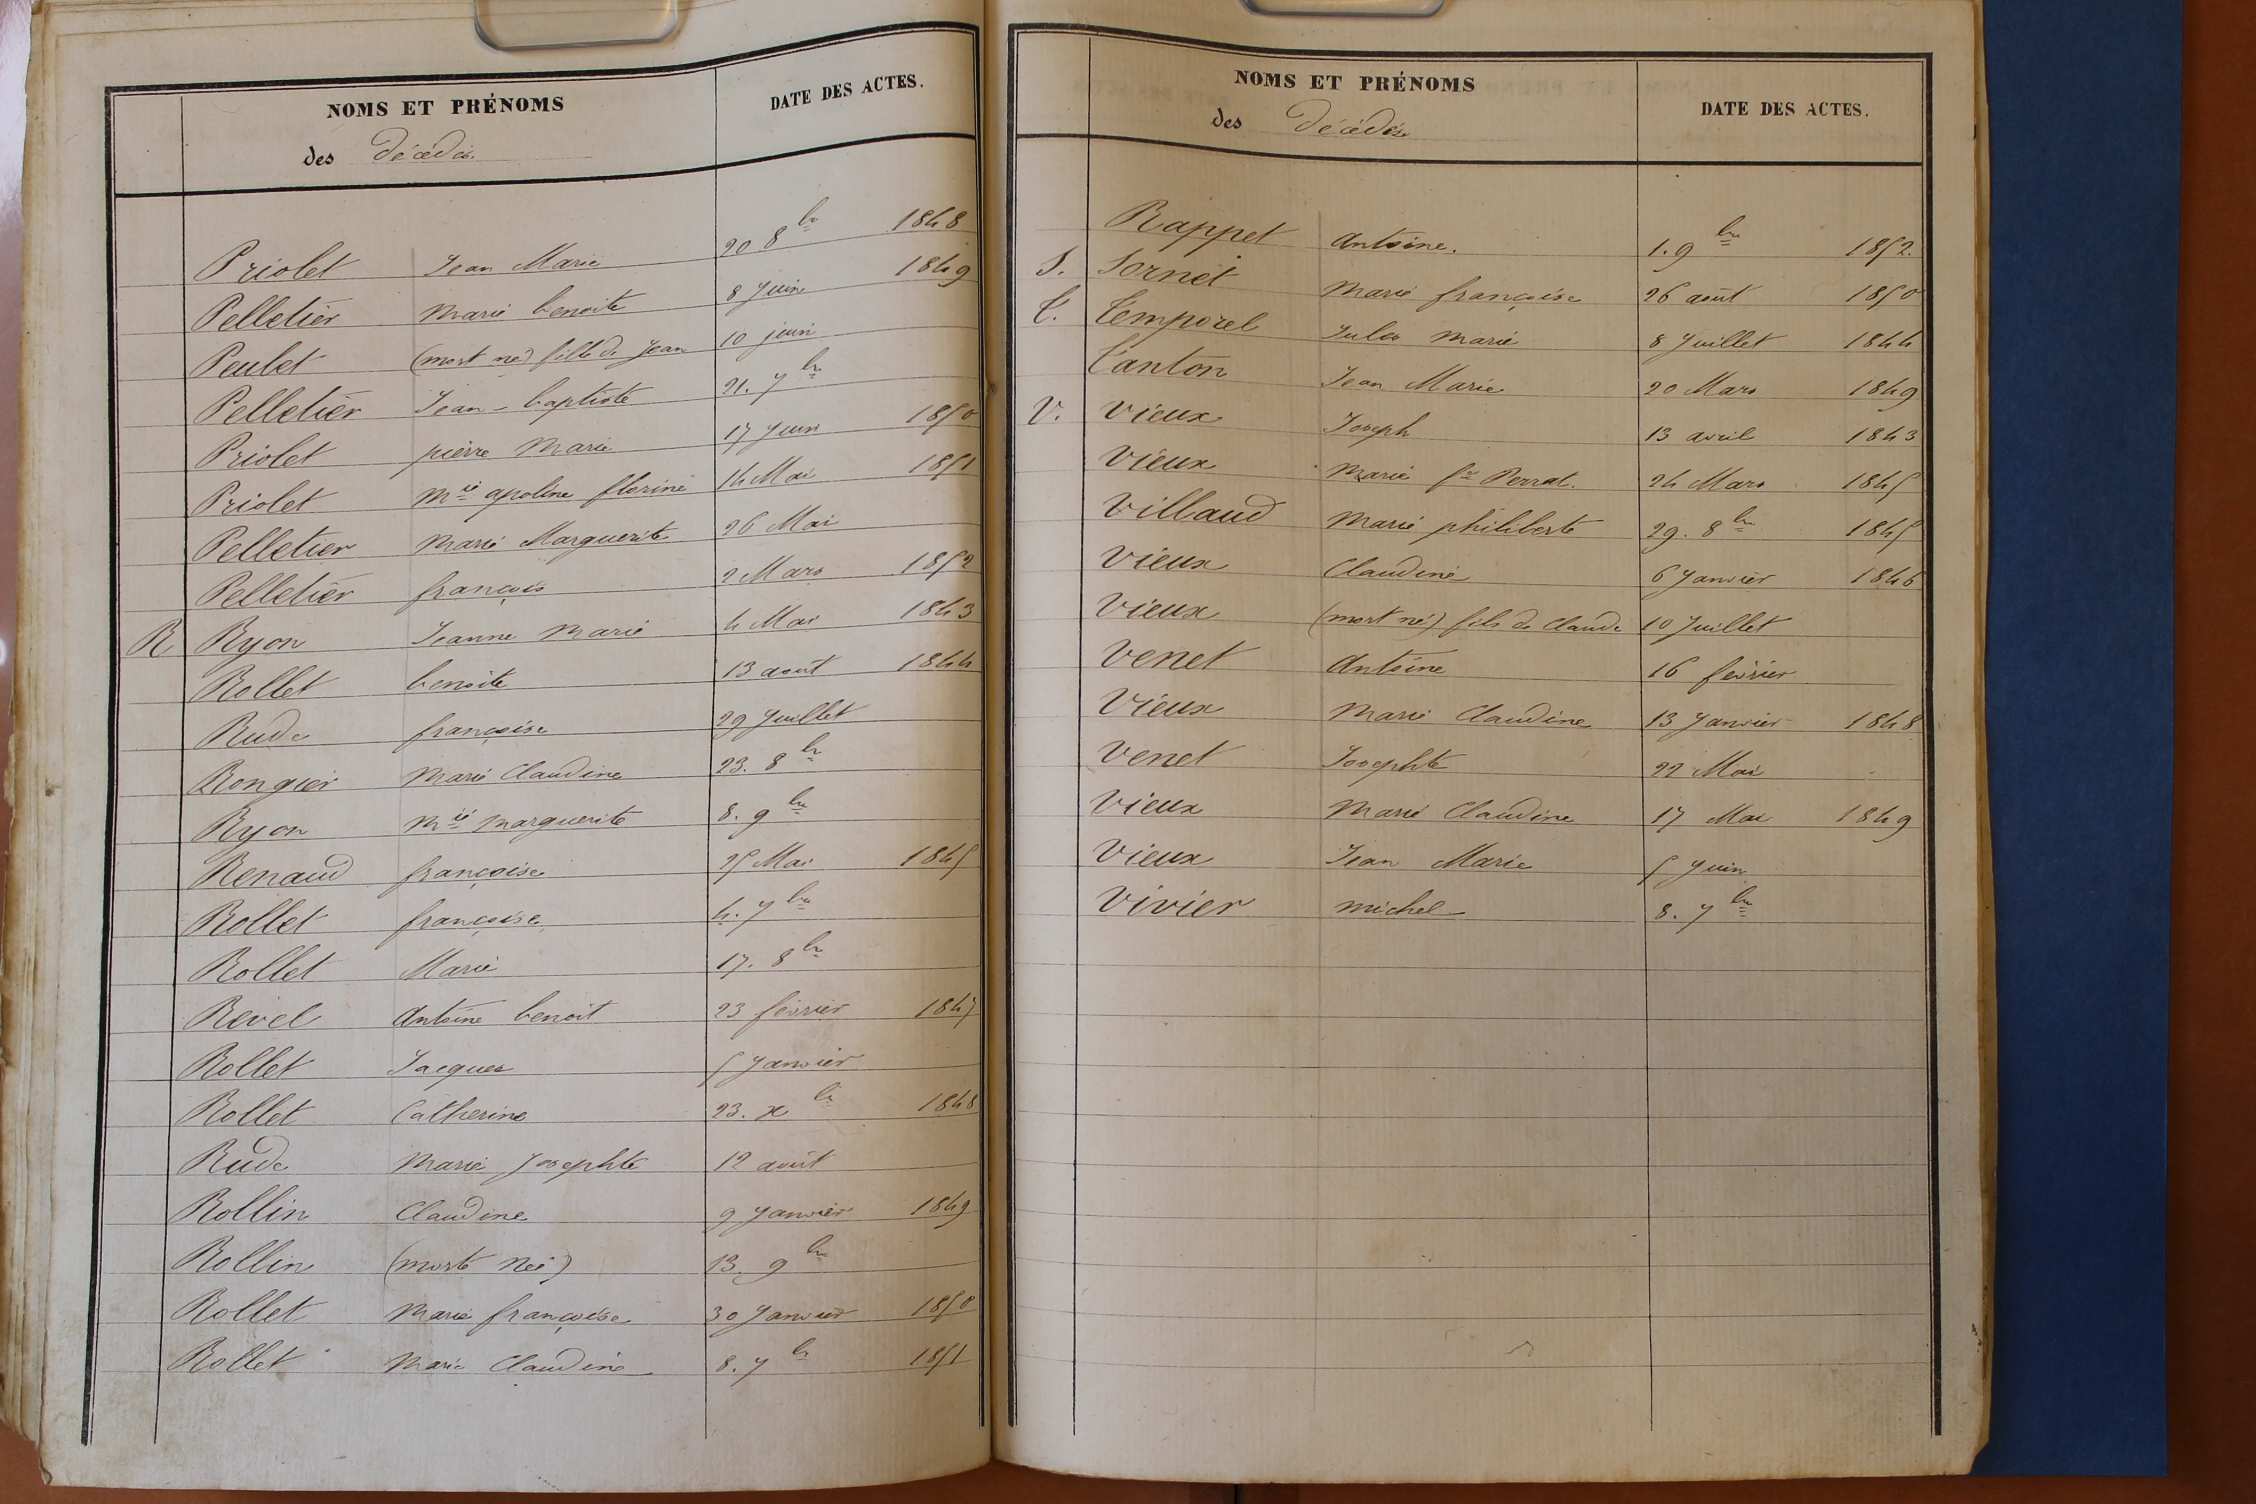 NOMS ET PRÉNOMS DATE DES ACTES.
des Décédés
Priolet Jean Marie 20 8bre 1848
Pelletier Marie benoite 8 Juin 1849
Peulet (mort né) fille de Jean 10 juin
Pelletier Jean-baptiste 21. 7bre
Priolet pierre Marie 17 Juin 1850
Priolet Mie apoline florine 14 Mai 1851
Pelletier Marie Marguerite 26 Mai
Pelletier françois 2 Mars 1852
R Ryon Jeanne Marie 4 Mai 1843
Rollet benoite 13 août 1844
Rude françoise 29 Juillet
Rongier Marie Claudine 23. 8bre
Ryon Mie Marguerite 8. 9bre
Renaud françoise 25 Mai 1845
Rollet françoise 4. 7bre
Rollet Marie 17. 8bre
Revel Antoine benoit 23 février 1847
Rollet Jacques 5 Janvier
Rollet Catherine 23. xbre 1848
Rude Marie Josephte 12 août
Rollin Claudine 9 Janvier 1849
Rollin (morte Née) 13. 9bre
Rollet Marie françoise 30 Janvier 1850
Rollet Marie Claudine 8. 7bre 1851
NOMS ET PRÉNOMS DATE DES ACTES.
des Décédés
Rappet Antoine. 1. 9bre 1852.
S. Sornet Marie françoise 26 août 1850
T. Temporel Jules Marie 8 Juillet 1844
Tanton Jean Marie 20 Mars 1849
V. Vieux Joseph 13 avril 1843
Vieux Marie fe Perrat. 24 Mars 1845
Villaud Marie philiberte 29. 8bre 1845
Vieux Claudine 6 Janvier 1846
Vieux (mort né) fils de Claude 10 Juillet
Venet Antoine 16 février
Vieux Marie Claudine 13 Janvier 1848
Venet Josephte 22 Mai
Vieux Marie Claudine 17 Mai 1849
Vieux Jean Marie 5 Juin
Vivier Michel 8. 7bre